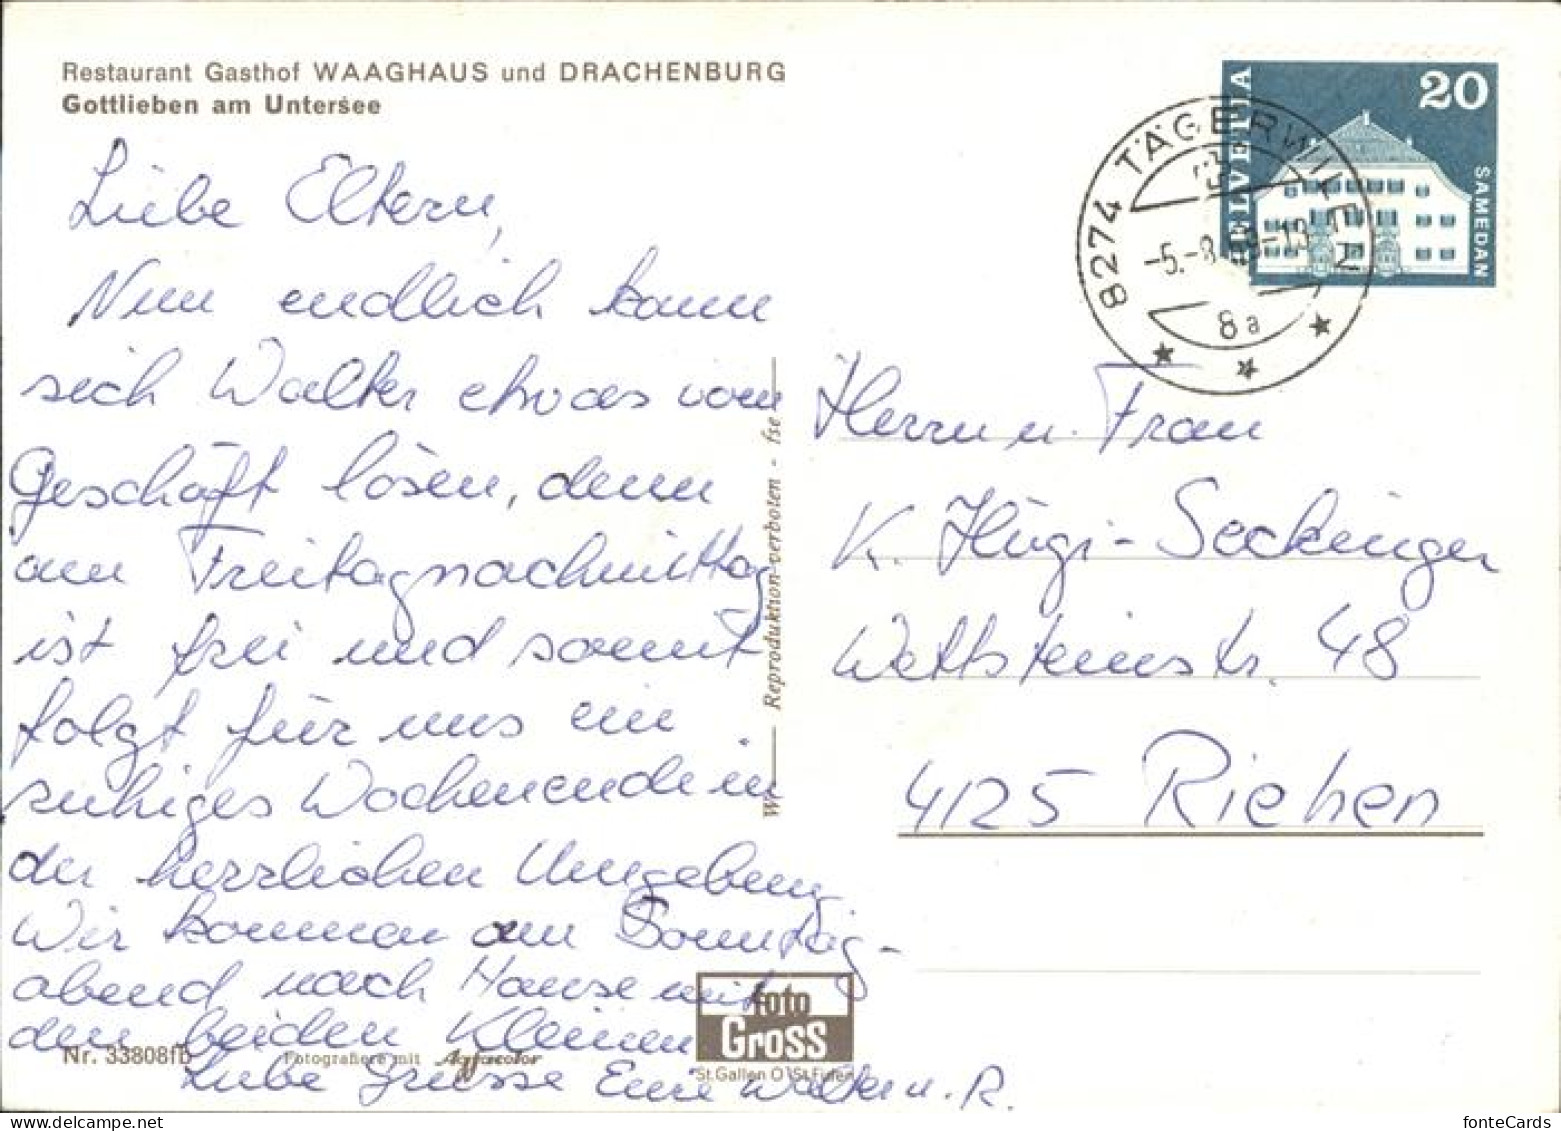 Restaurant Gasthof WAAGHAUS und DRACHENBURG
Gottlieben am Untersee
Liebe Eltern,
Nun endlich kann
sich Walter etwas vom
Geschäft lösen, denn
am Freitagnachmittag
ist frei und somit
folgt für uns ein
ruhiges Wochenende in
der herrlichen Umgebung
Wir kommen am Sonntag-
abend nach Hause mit
den beiden Kleinen
Liebe Grüsse Eure Walter u. R.
Nr. 33808fb
Fotografiere mit Agfacolor
foto
Gross
St. Gallen O St. Fiden
Reproduktion verboten - fse
HELVETIA
20
SAMEDAN
8274 TÄGERWILEN
-5.-8.
-13
8a
Herrn u. Frau
K. Hügi-Seckinger
Wettsteinstr. 48
4125 Riehen
fonteCards